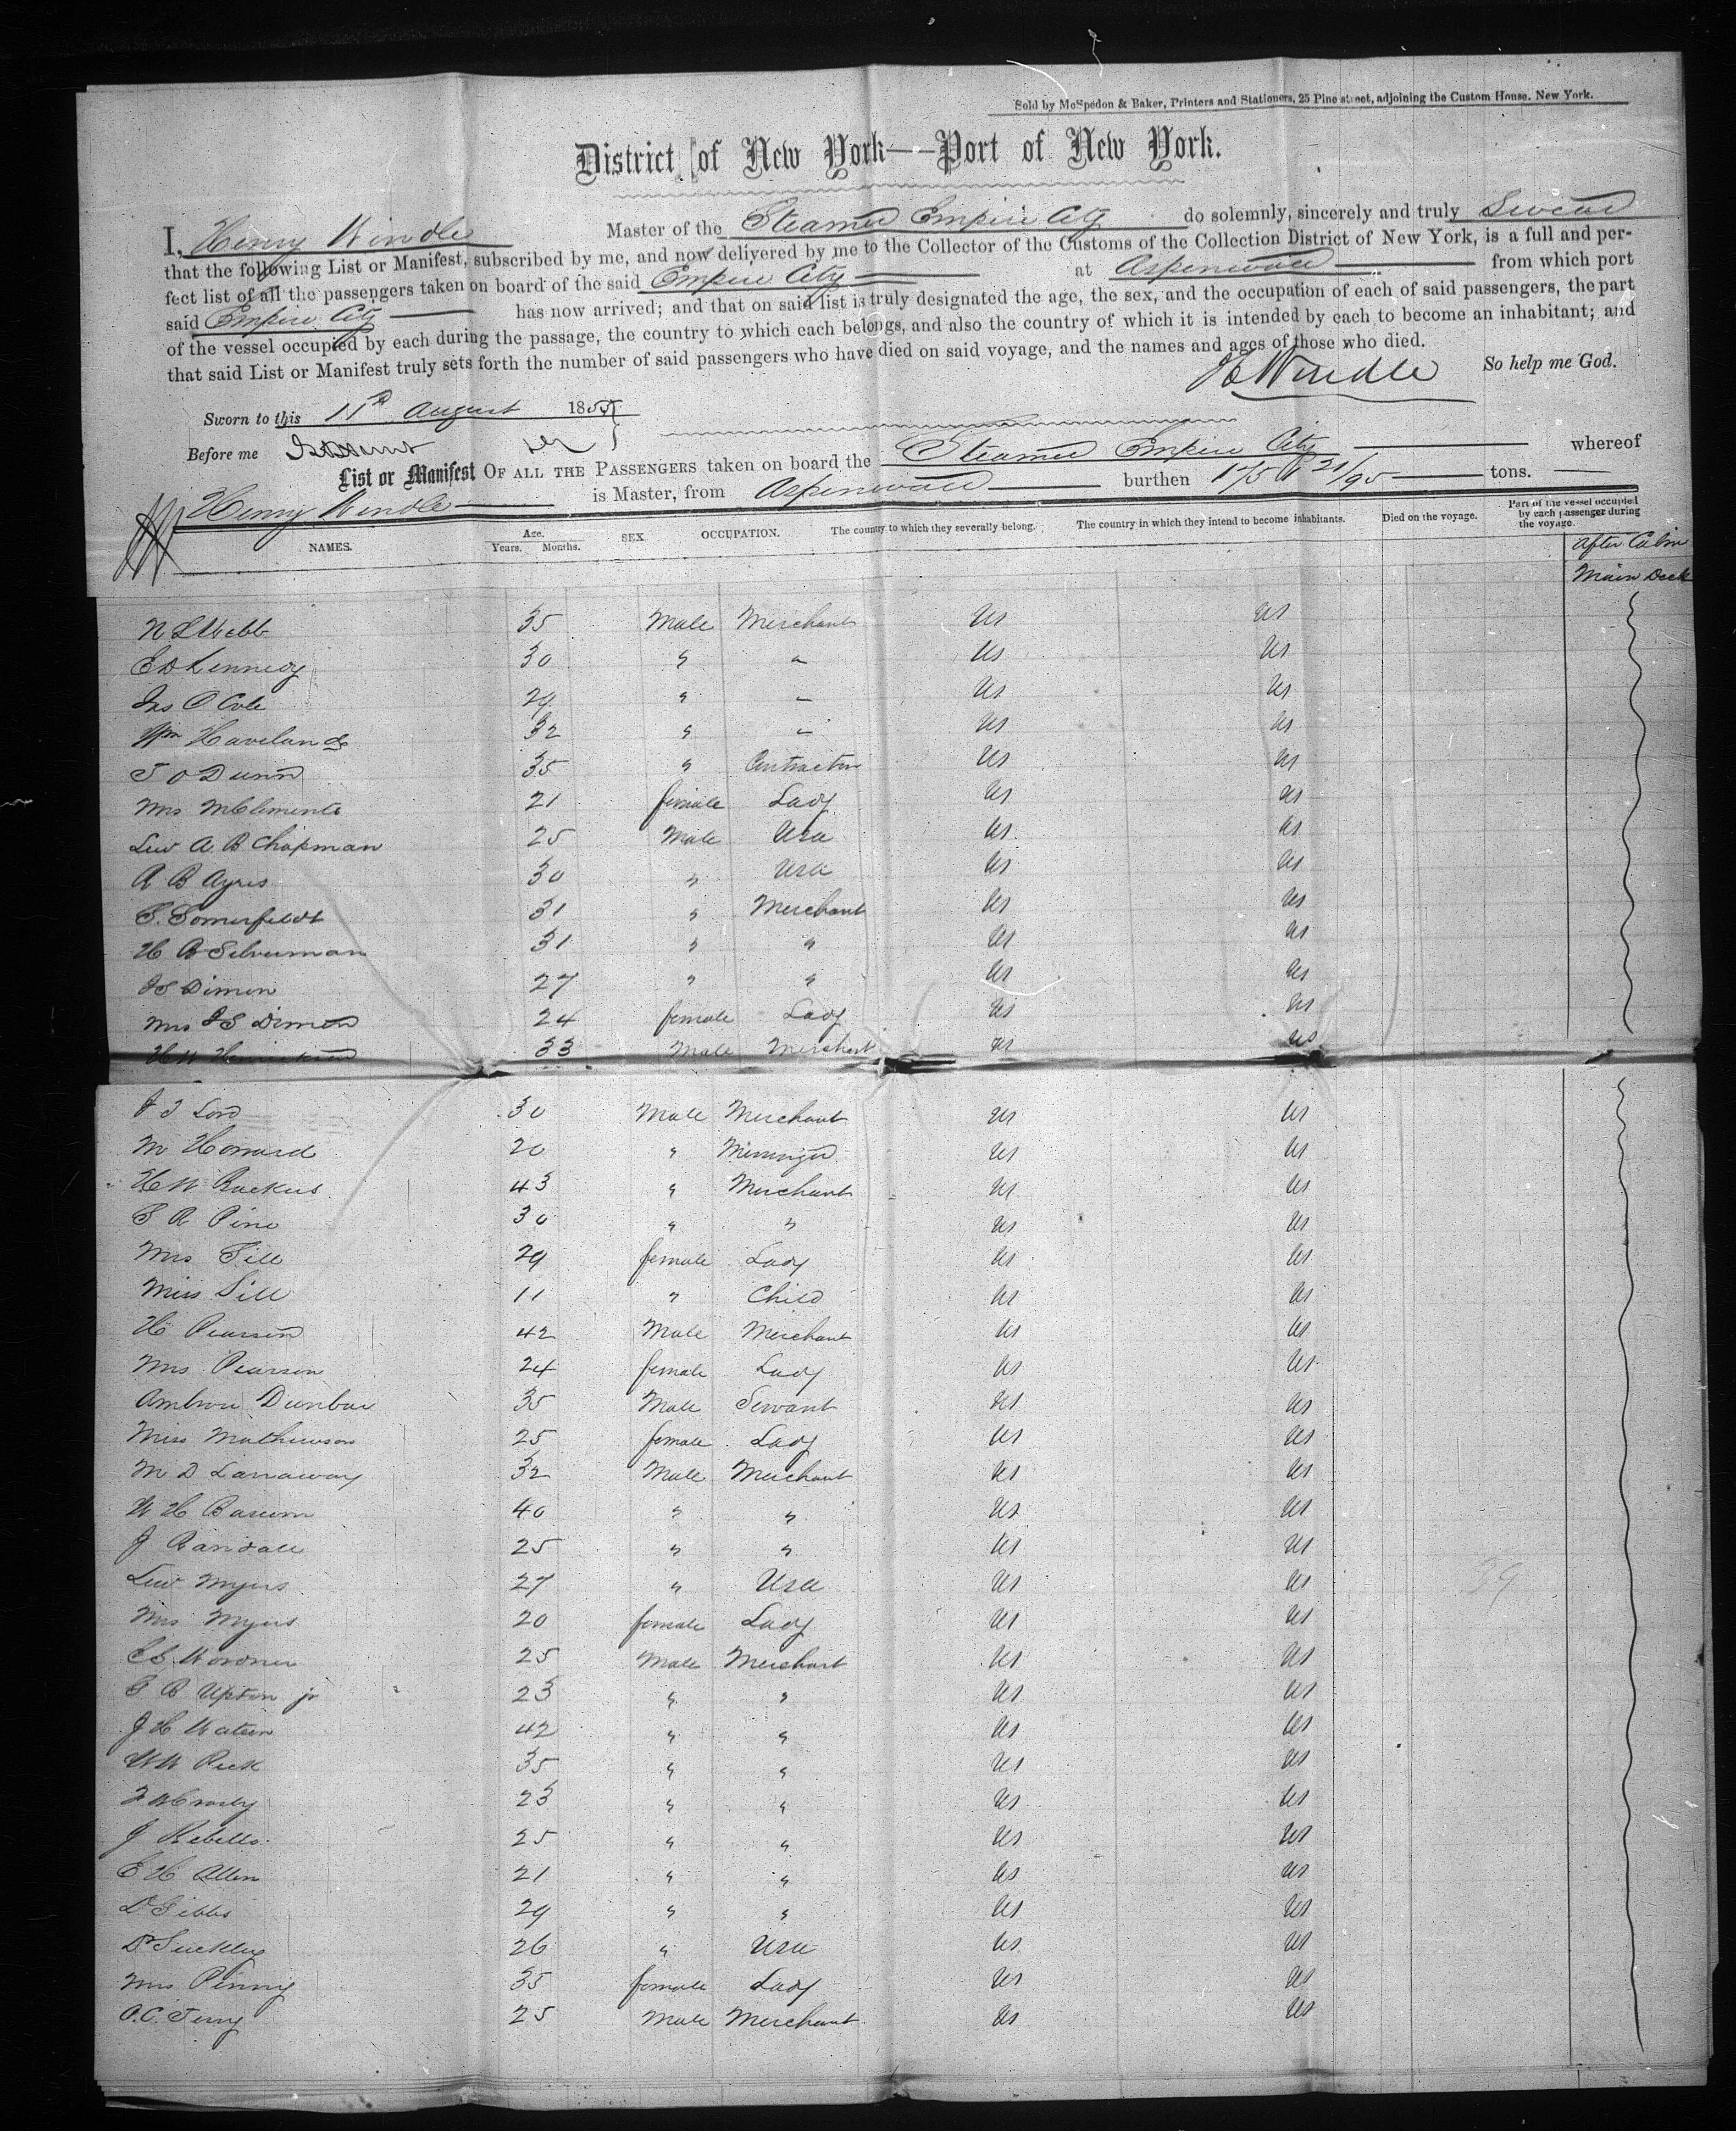 Sold by McSpedon & Baker, Printers and Stationers, 25 Pine street, adjoining the Custom House, New York.
District of New York——Port of New York.
I, Henry Windle Master of the Steamer Empire City do solemnly, sincerely and truly Swear
that the following List or Manifest, subscribed by me, and now delivered by me to the Collector of the Customs of the Collection District of New York, is a full and per-
fect list of all the passengers taken on board of the said Empire City at Aspenwall from which port
said Empire City has now arrived; and that on said list is truly designated the age, the sex, and the occupation of each of said passengers, the part
of the vessel occupied by each during the passage, the country to which each belongs, and also the country of which it is intended by each to become an inhabitant; and
that said List or Manifest truly sets forth the number of said passengers who have died on said voyage, and the names and ages of those who died.
H Windle So help me God.
Sworn to this 11th August 1855
Before me
List or Manifest OF ALL THE PASSENGERS taken on board the Steamer Empire City whereof
Henry Windle is Master, from Aspenwall burthen 21/95 tons.
NAMES. Age. Years. Months. SEX. OCCUPATION. The country to which they severally belong. The country in which they intend to become inhabitants. Died on the voyage. Part of the vessel occupied by each passenger during the voyage.
After Cabin
Main Deck
N L Webb 35 Male Merchant US US
E D Kennedy 30 " " US US
Jas C Cole 29 " " US US
Wm Haveland 32 " " US US
T O Dunn 35 " Contractor US US
Mrs McClements 21 female Lady US US
Liu A. B Chapman 25 Male USA US US
R B Ayres 30 " USA US US
S. Somerfeldt 31 " Merchant US US
H A Silverman 31 " " US US
J S Dimon 27 " " US US
Mrs J S Dimon 24 female Lady US US
H W 33 Male Merchant US US
J T Lord 30 Male Merchant US US
M Howard 20 " US US
H W Backus 43 " Merchant US US
S R Pine 30 " " US US
Mrs Sill 29 female Lady US US
Miss Sill 11 " Child US US
H Pearson 42 Male Merchant US US
Mrs Pearson 24 female Lady US US
Ambrou Dunbar 35 Male Servant US US
Miss Mathewson 25 female Lady US US
M D Larraway 32 Male Merchant US US
W H Barium 40 " " US US
J Randall 25 " " US US
Liu Myers 27 " USA US US
Mrs Myers 20 female Lady US US
C S Wordner 25 Male Merchant US US
G B Upton jr 23 " " US US
J H Watson 42 " " US US
W W Peck 35 " " US US
F W Crosby 23 " " US US
J Rebello 25 " " US US
E H Allen 21 " " US US
D Gibbs 29 " " US US
Dr Suckley 26 " USA US US
Mrs Penny 35 female Lady US US
A.C. Terry 25 Male Merchant US US